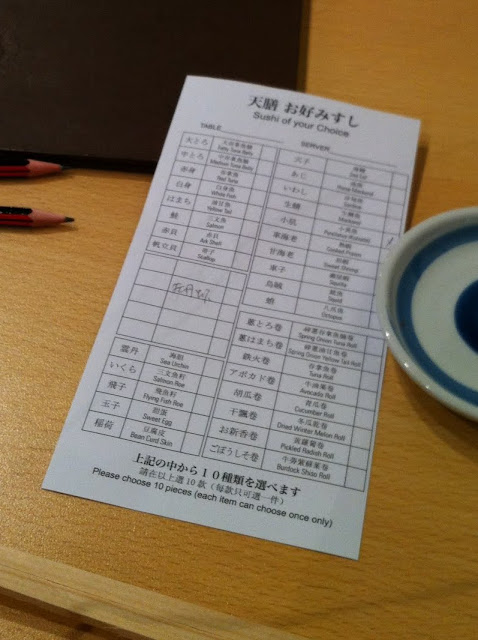 天膳 お好みすし
Sushi of your Choice
TABLE
SERVER
大とろ
Fatty Tuna Belly
中とろ
Medium Tuna Belly
赤身 吞拿魚
Red Tuna
白身 白身魚
White Fish
はまち 油甘魚
Yellow Tail
鮭 三文魚
Salmon
赤貝 赤貝
Ark Shell
帆立貝 帶子
Scallop
雲丹 海胆
Sea Urchin
いくら 三文魚籽
Salmon Roe
飛子 飛魚籽
Flying Fish Roe
玉子 甜蛋
Sweet Egg
稲荷 豆腐皮
Bean Curd Skin
穴子 海鰻
Sea Eel
あじ
Horse Mackerel
いわし 沙甸魚
Sardine
生鯖 生鯖魚
Mackerel
小肌
車海老 熟蝦
Cooked Prawn
甘海老 甜蝦
Sweet Shrimp
車子
Squilla
烏賊
Squid
蛸 八爪魚
Octopus
葱とろ巻
Spring Onion Tuna Roll
葱はまち巻
Spring Onion Yellow Tail Roll
鉄火巻 吞拿魚卷
Tuna Roll
アボカド巻 牛油果卷
Avocado Roll
胡瓜巻 青瓜卷
Cucumber Roll
干瓢巻 冬瓜乾卷
Dried Winter Melon Roll
お新香巻 黃蘿蔔卷
Pickled Radish Roll
ごぼうしそ巻 牛蒡紫蘇葉卷
Burdock Shiso Roll
上記の中から10種類を選べます
請在以上選10款（每款只可選一件）
Please choose 10 pieces (each item can choose once only)